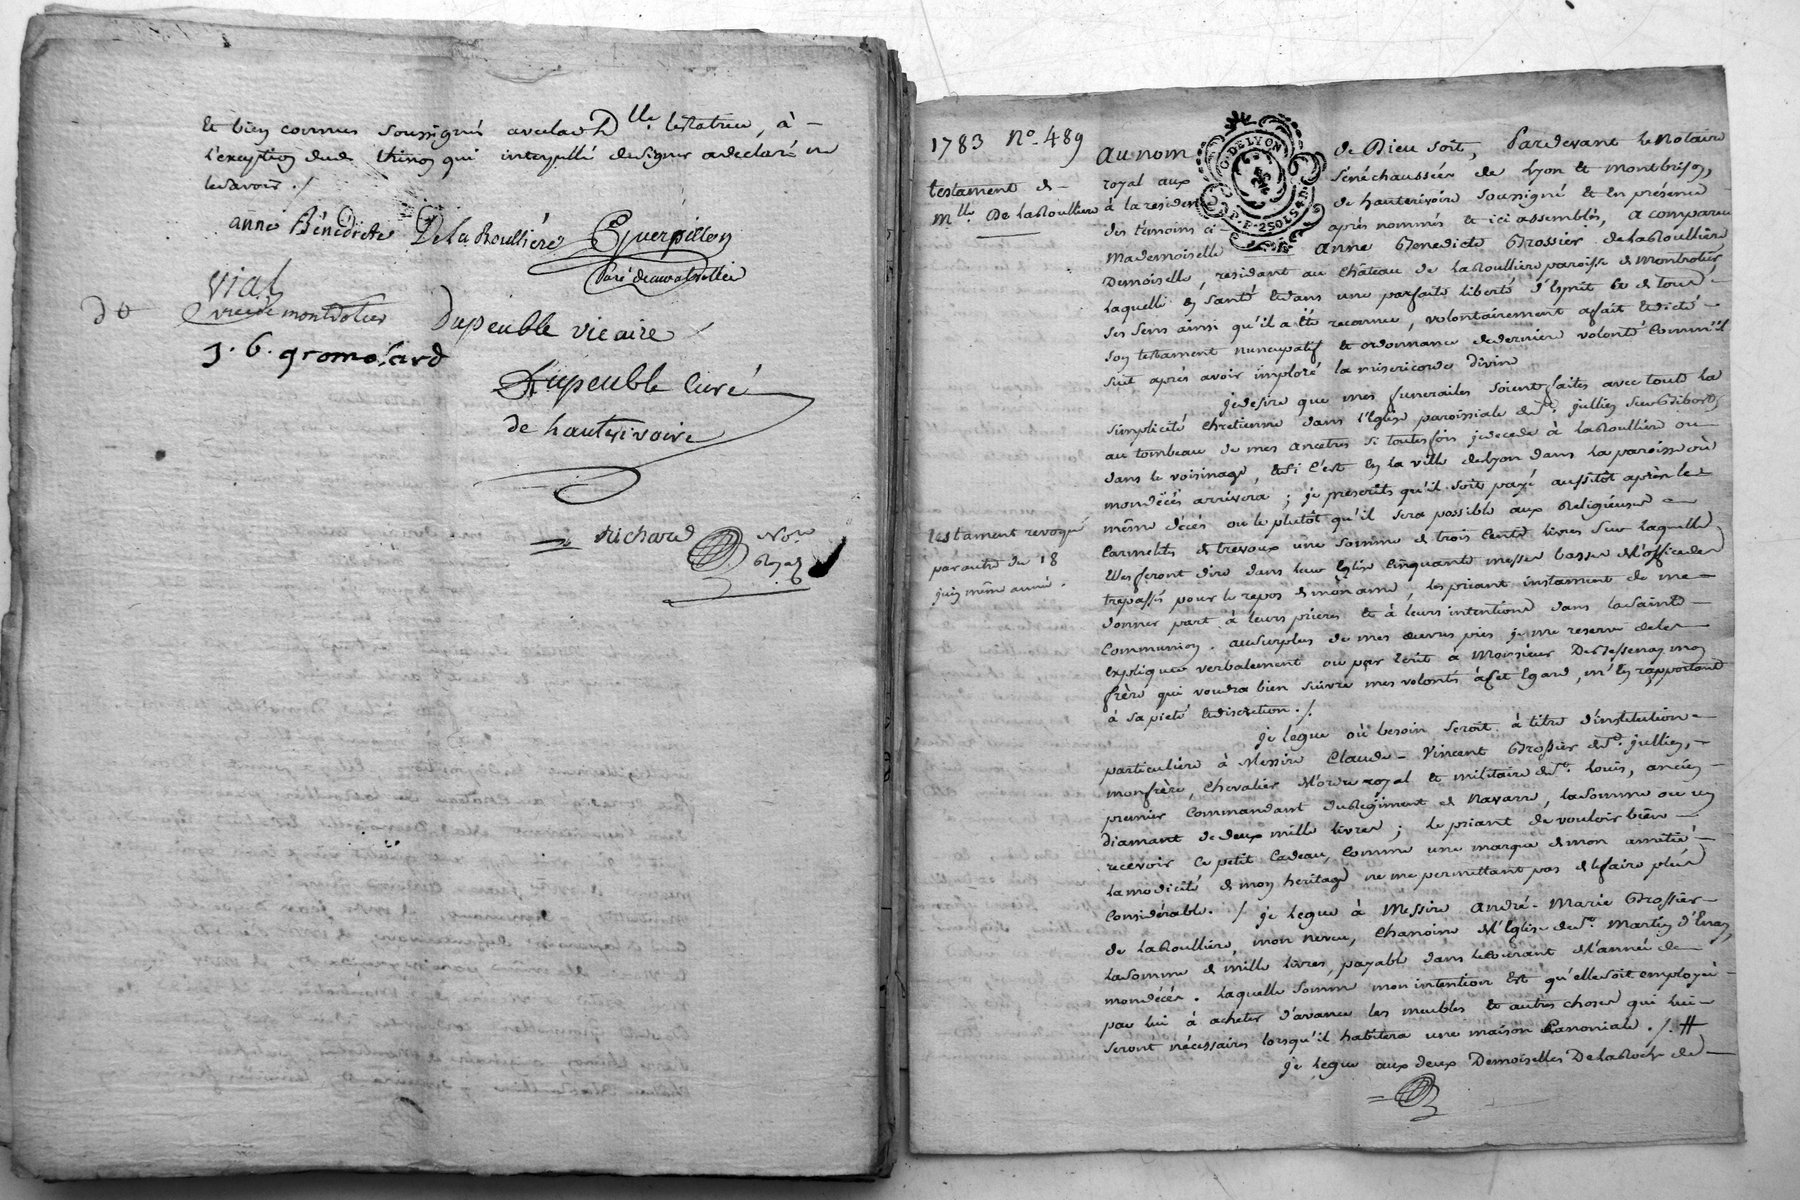 et bien connus soussignés avec lad. Dlle testatrice, à
l'exception dud. thinon qui interpellé de signer a declaré ne
le savoir ./.
anne Bénédicte DelaRoullière Guerpillon
Curé de
Vial
vic. de montrotier
Dupeuble vicaire
J. B. gromolard
Dupeuble Curé
de hauterivoire
Richard Nore
Royal
1783 No. 489
testament de
Mlle De LaRoulliere
testament revoqué
par autre du 18
juin même année.
G. DE LYON
au nom de Dieu soit, Pardevant le Notaire
royal aux Sénéchaussées de Lyon et montbrison,
à la residence de hauterivoire soussigné et en présence
des témoins ci- après nommés et ici assemblés, a comparu
Mademoiselle Anne Benedicte Grossier de laRoullière
Demoiselle, residant au château de laRoulliere paroisse de Montrotier,
laquelle en santé et dans une parfaite liberté d'Esprit et de tous
ses sens ainsi qu'il a été reconnu, volontairement a fait et dicté
son testament nuncupatif et ordonnance de derniere volonté comm'il
suit après avoir imploré la misericorde divine
je desire que mes funerailes soient faites avec toute la
simplicité chretienne dans l'Eglise paroissiale de St. jullien sur Bibost,
au tombeau de mes ancetres si toutes fois je decede à laRoullière ou
dans le voisinage, et si c'est en la ville de Lyon dans la paroisse où
mon décès arrivera ; je prescrits qu'il soit payé aussitôt après le
même décès ou le plutôt qu'il sera possible aux Religieuses
Carmelites de trevoux une somme de trois cents livres sur laquelle
elles feront dire dans leur Eglise cinquante messes basses et l'office des
trepassés pour le repos de mon ame, les priant instament de me
donner part à leurs prieres et à leurs intentions dans la sainte
Communion. au surplus de mes œuvres pies je me reserve de les
expliquer verbalement ou par Ecrit à Monsieur De Bessenay mon
frère qui voudra bien suivre mes volontés à cet Egard, m'en rapportant
à sa pieté et discretion ./.
je legue où besoin seroit à titre d'institution
particulière à Messire Claude-Vincent Grossier de St. jullien,
mon frère, Chevalier de l'ordre royal et militaire de St. Louis, ancien
premier Commandant du Regiment de Navarre, la somme ou un
diamant de deux mille livres ; le priant de vouloir bien
recevoir ce petit Cadeau, comme une marque de mon amitié
la modicité de mon heritage ne me permettant pas de le faire plus
Considérable. / je legue à Messire André-Marie Grossier
de laRoullière, mon neveu, Chanoine de l'Eglise de St. Martin d'Enay,
la somme de mille livres, payable dans le courant de l'année de
mon décès. Laquelle somme mon intention Est qu'elle soit employée
par lui à acheter d'avance les meubles et autres choses qui lui
seront nécessaires lorsqu'il habitera une maison Canoniale ./. #
je legue aux deux Demoiselles De laRoche de